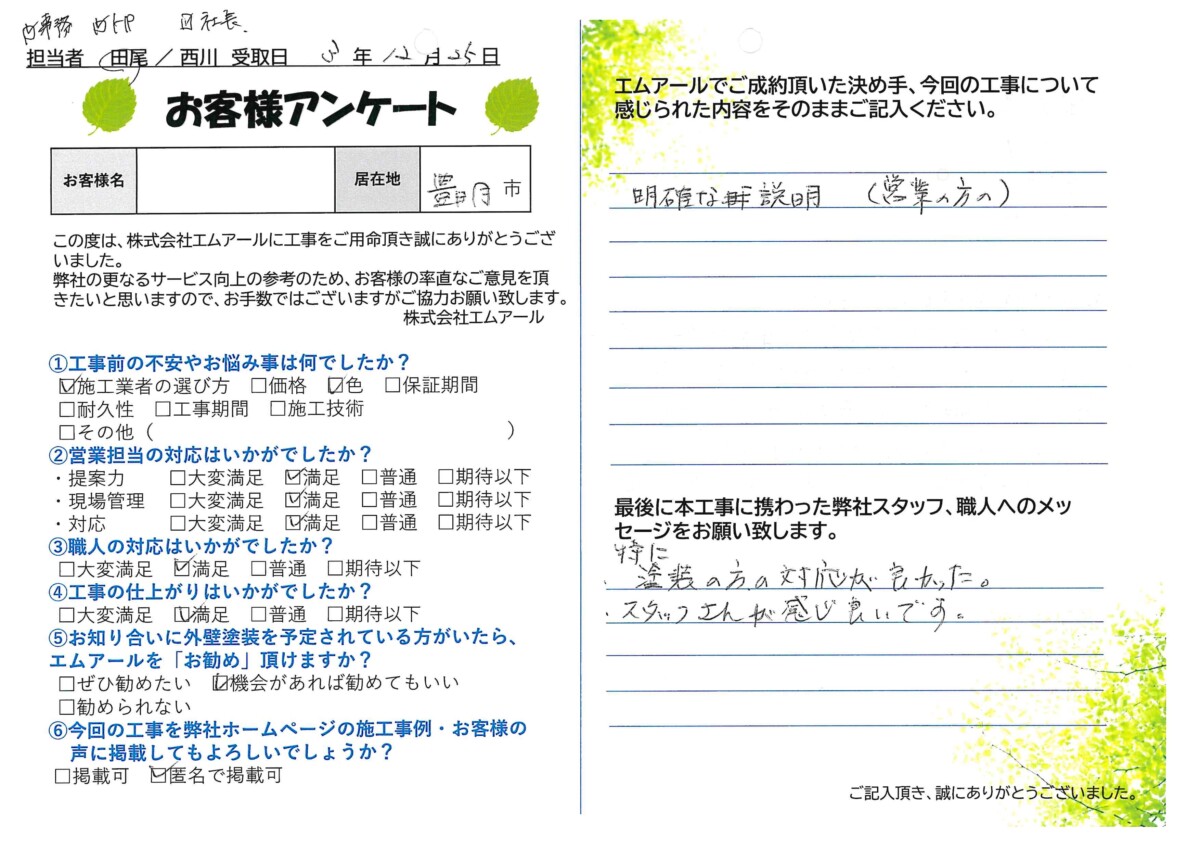 ☑事務 ☑HP ☑社長
担当者 田尾 / 西川 受取日 3年12月25日
お客様アンケート
お客様名 居在地 豊明市
この度は、株式会社エムアールに工事をご用命頂き誠にありがとうござ
いました。
弊社の更なるサービス向上の参考のため、お客様の率直なご意見を頂
きたいと思いますので、お手数ではございますがご協力お願い致します。
株式会社エムアール
①工事前の不安やお悩み事は何でしたか？
☑施工業者の選び方 □価格 ☑色 □保証期間
□耐久性 □工事期間 □施工技術
□その他（ ）
②営業担当の対応はいかがでしたか？
・提案力 □大変満足 ☑満足 □普通 □期待以下
・現場管理 □大変満足 ☑満足 □普通 □期待以下
・対応 □大変満足 ☑満足 □普通 □期待以下
③職人の対応はいかがでしたか？
□大変満足 ☑満足 □普通 □期待以下
④工事の仕上がりはいかがでしたか？
□大変満足 ☑満足 □普通 □期待以下
⑤お知り合いに外壁塗装を予定されている方がいたら、
エムアールを「お勧め」頂けますか？
□ぜひ勧めたい ☑機会があれば勧めてもいい
□勧められない
⑥今回の工事を弊社ホームページの施工事例・お客様の
声に掲載してもよろしいでしょうか？
□掲載可 ☑匿名で掲載可
エムアールでご成約頂いた決め手、今回の工事について
感じられた内容をそのままご記入ください。
明確な説明 (営業の方の)
最後に本工事に携わった弊社スタッフ、職人へのメッ
セージをお願い致します。
特に
・塗装の方の対応が良かった。
・スタッフさんが感じ良いです。
ご記入頂き、誠にありがとうございました。